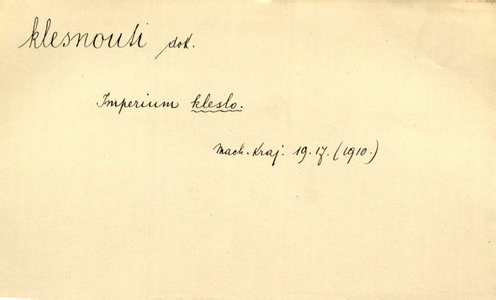 klesnouti dok.
Imperium kleslo.
Mach. Kraj. 19. 17. (1910.)